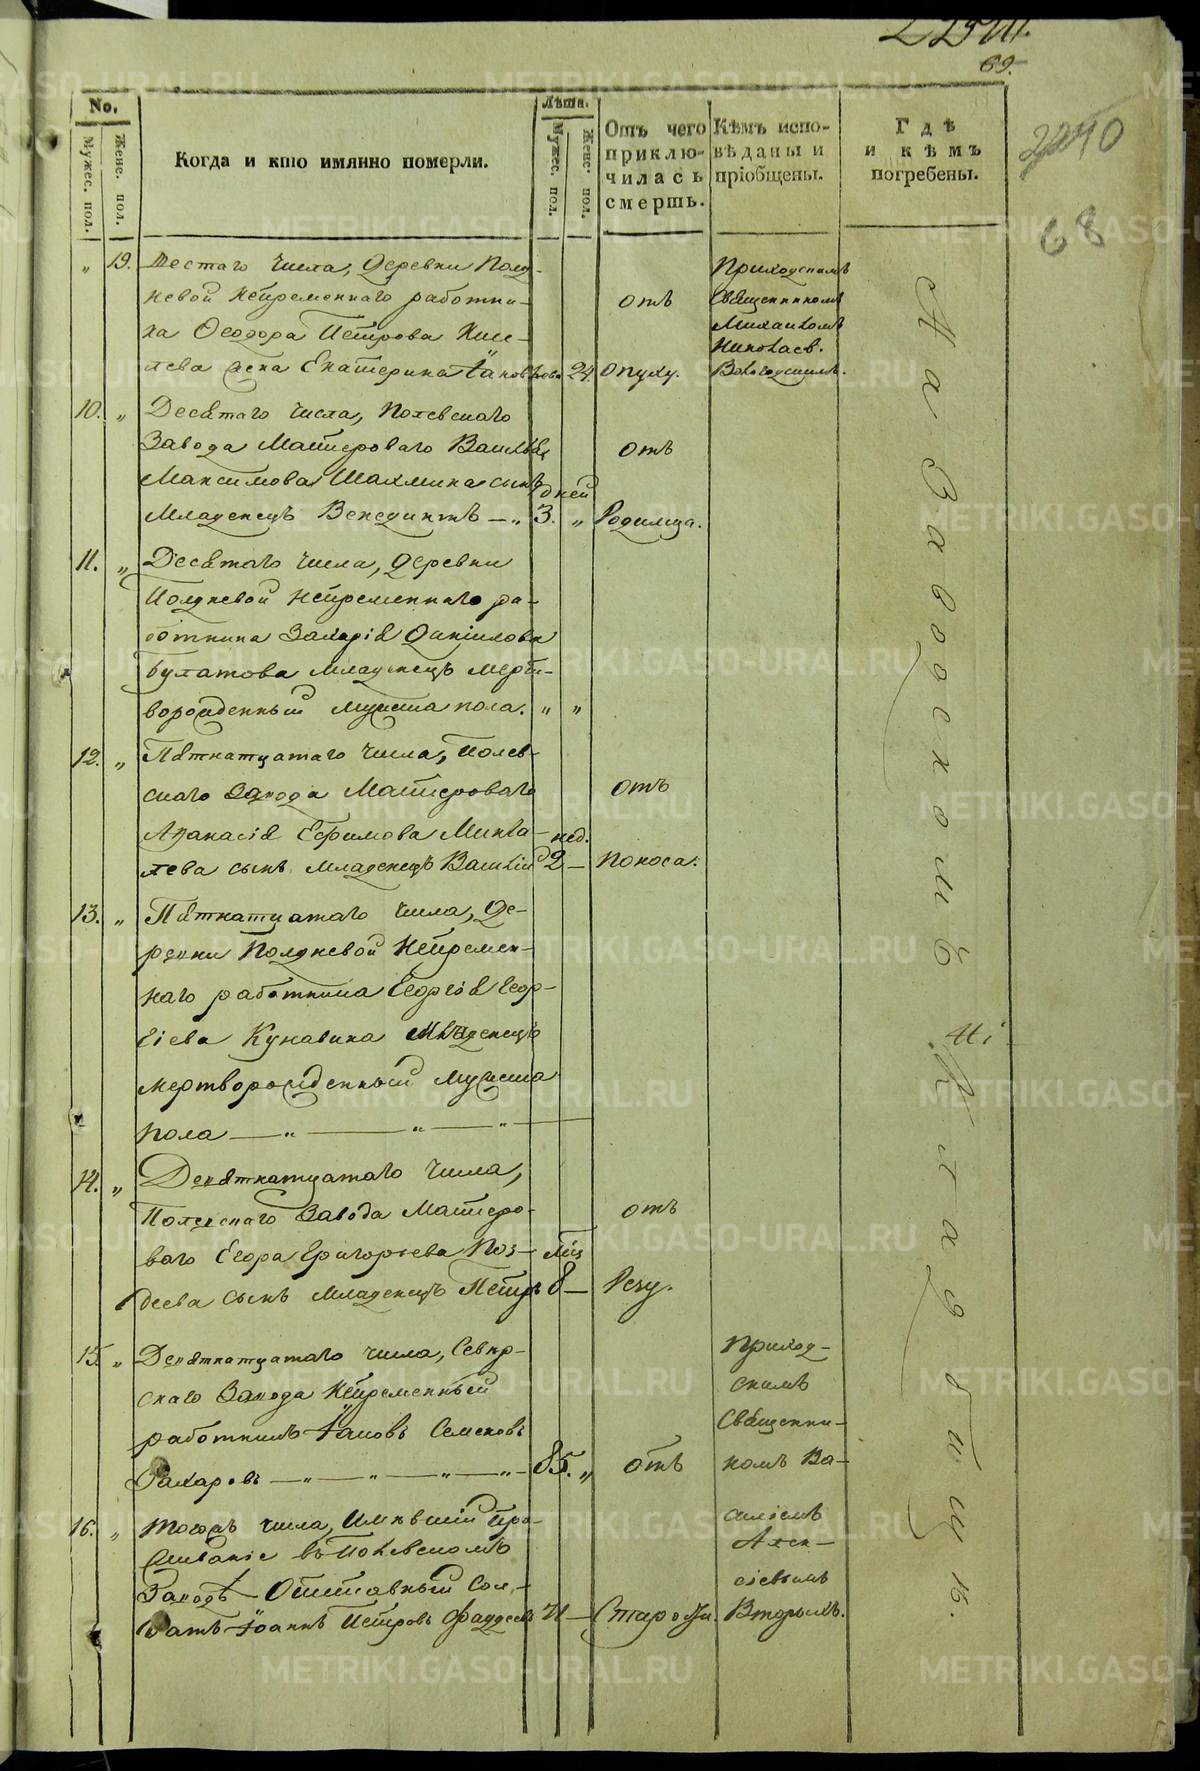 69.
2240
68
No.
Мужес. пол.
Женс. пол.
Когда и кто имянно померли.
Лѣта.
Мужес. пол.
Женс. пол.
Отъ чего приклю-
чилась смерть.
Кѣмъ испо-
вѣданы и
пріобщены.
Гдѣ
и кѣмъ
погребены.
" 19. Шестаго числа, Деревни Полд-
невой Непременнаго работни-
ка Ѳеодора Петрова
жена Екатерина Іаковлева 24. отъ опуху.
Приходскимъ
Священникомъ
Михаиломъ
Николаев.
10. " Десятаго числа, Полевскаго
Завода Мастероваго Василья
Максимова Шахмина сынъ
Младенецъ Венедиктъ — " дней 3. " отъ Родимца.
11. " Десятаго числа, Деревни
Полдневой Непременнаго ра-
ботника Захарія Даніилова
Булатова Младенецъ Мерт-
ворожденный мужеска пола. " "
12. " Пятнатцатаго числа, Полев-
скаго Завода Мастероваго
Афанасія Ефимова
сынъ младенецъ Василій нед. 2 — отъ Поноса.
13. " Пятнатцатаго числа, Де-
ревни Полдневой Непремен-
наго работника Георгія Геор-
гіева Кунавина Младенецъ
мертворожденный мужеска
пола — " — " — " —
14. " Девятнатцатаго числа,
Полевскаго Завода Мастеро-
ваго Егора Григорьева Поз-
деева сынъ младенецъ Петръ мѣс 8 — отъ Резу.
15. " Девятнатцатаго числа, Север-
скаго Завода Непременный
работникъ Іаковъ Семеновъ
Захаровъ — " — " — " — " — 85. " отъ
Приход-
скимъ
Священни-
комъ Ва-
силіемъ
Алек-
сіевымъ
Вторыхъ.
16. " Тогожъ числа, Имѣвшій про-
живаніе въ Полевскомъ
Заводѣ Отставный Сол-
датъ Іоаннъ Петровъ Фаддеевъ 71 — Старости.
На Заводскомъ
Кладбищѣ